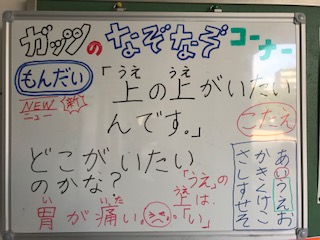 ガッツのなぞなぞコーナー
もんだい
NEW
ニュー
新
「上の上がいたい
うえ うえ
んです。」
こたえ
どこがいたい
のかな?
「うえ」の
上は
うえ
「い」
胃が痛い。
い いた
あいうえお
かきくけこ
さしすせそ